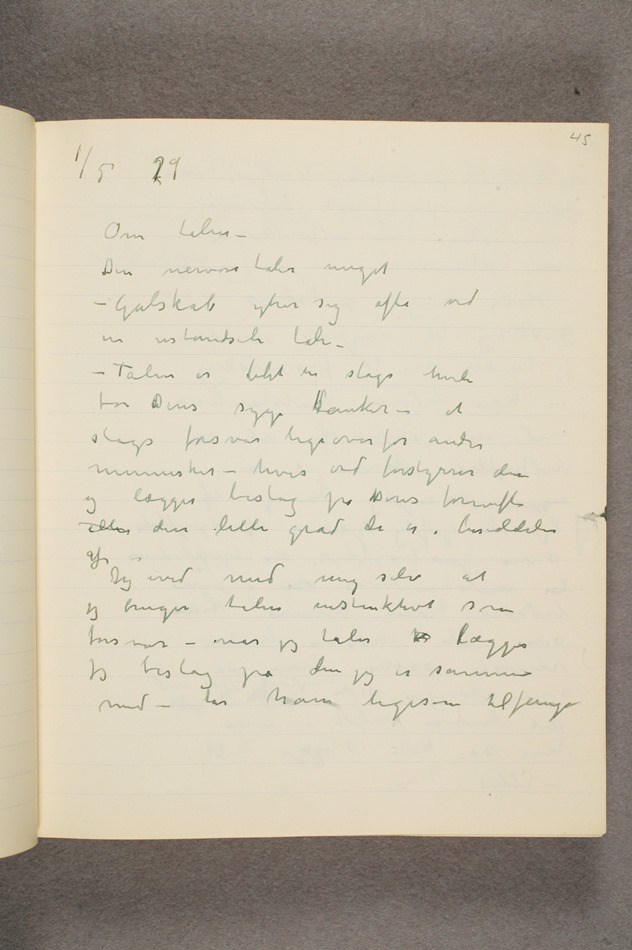 45
1/5 29
Om talen –
Den nervøse taler meget
– Galskab ytrer sig ofte ved
en ustandselig tale –
– Talen er blit en slags hvile
for Deres syge tanker – et
slags forsvar ligeoverfor andre
mennesker – hvis ord forstyrrer dem
og lægger beslag på Deres fornuft
eller den lille grad de er i besiddelse
af
Jeg ved med mig selv at
jeg bruger talen instinktivt som
forsvar – når jeg taler lægger
jeg beslag på den jeg er sammen
med – tar ham ligesom tilfange